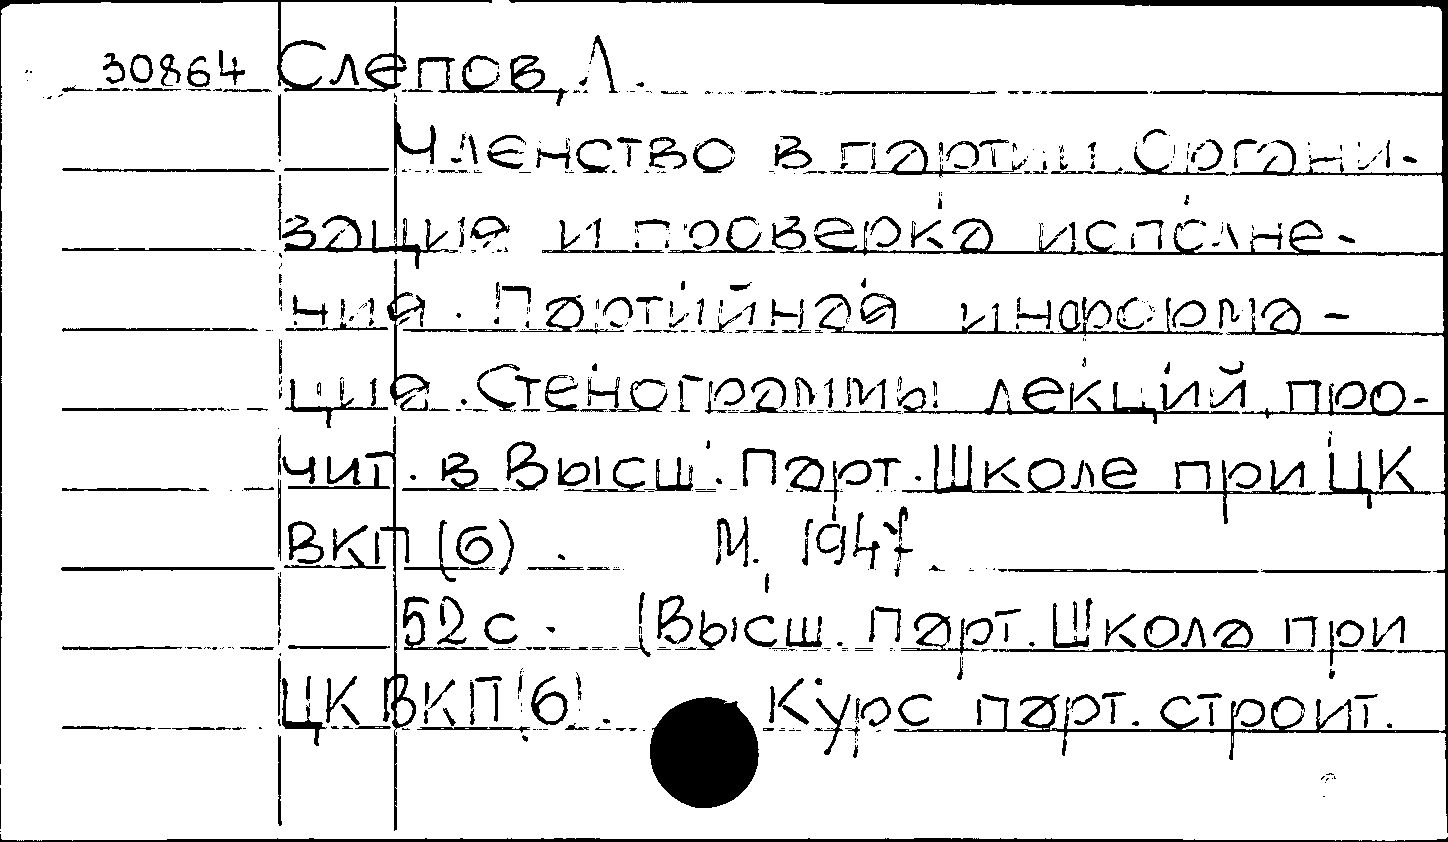 30864 Слепов, Л.
Членство в партии. Органи-
зация и проверка исполне-
ния. Партийная информа-
ция. Стенограммы лекций, про-
чит. в Высш. Парт. Школе при ЦК
ВКП(б). М. 1947
52 с. (Высш. Парт. Школа при
ЦК ВКП(б). Курс парт. строит.